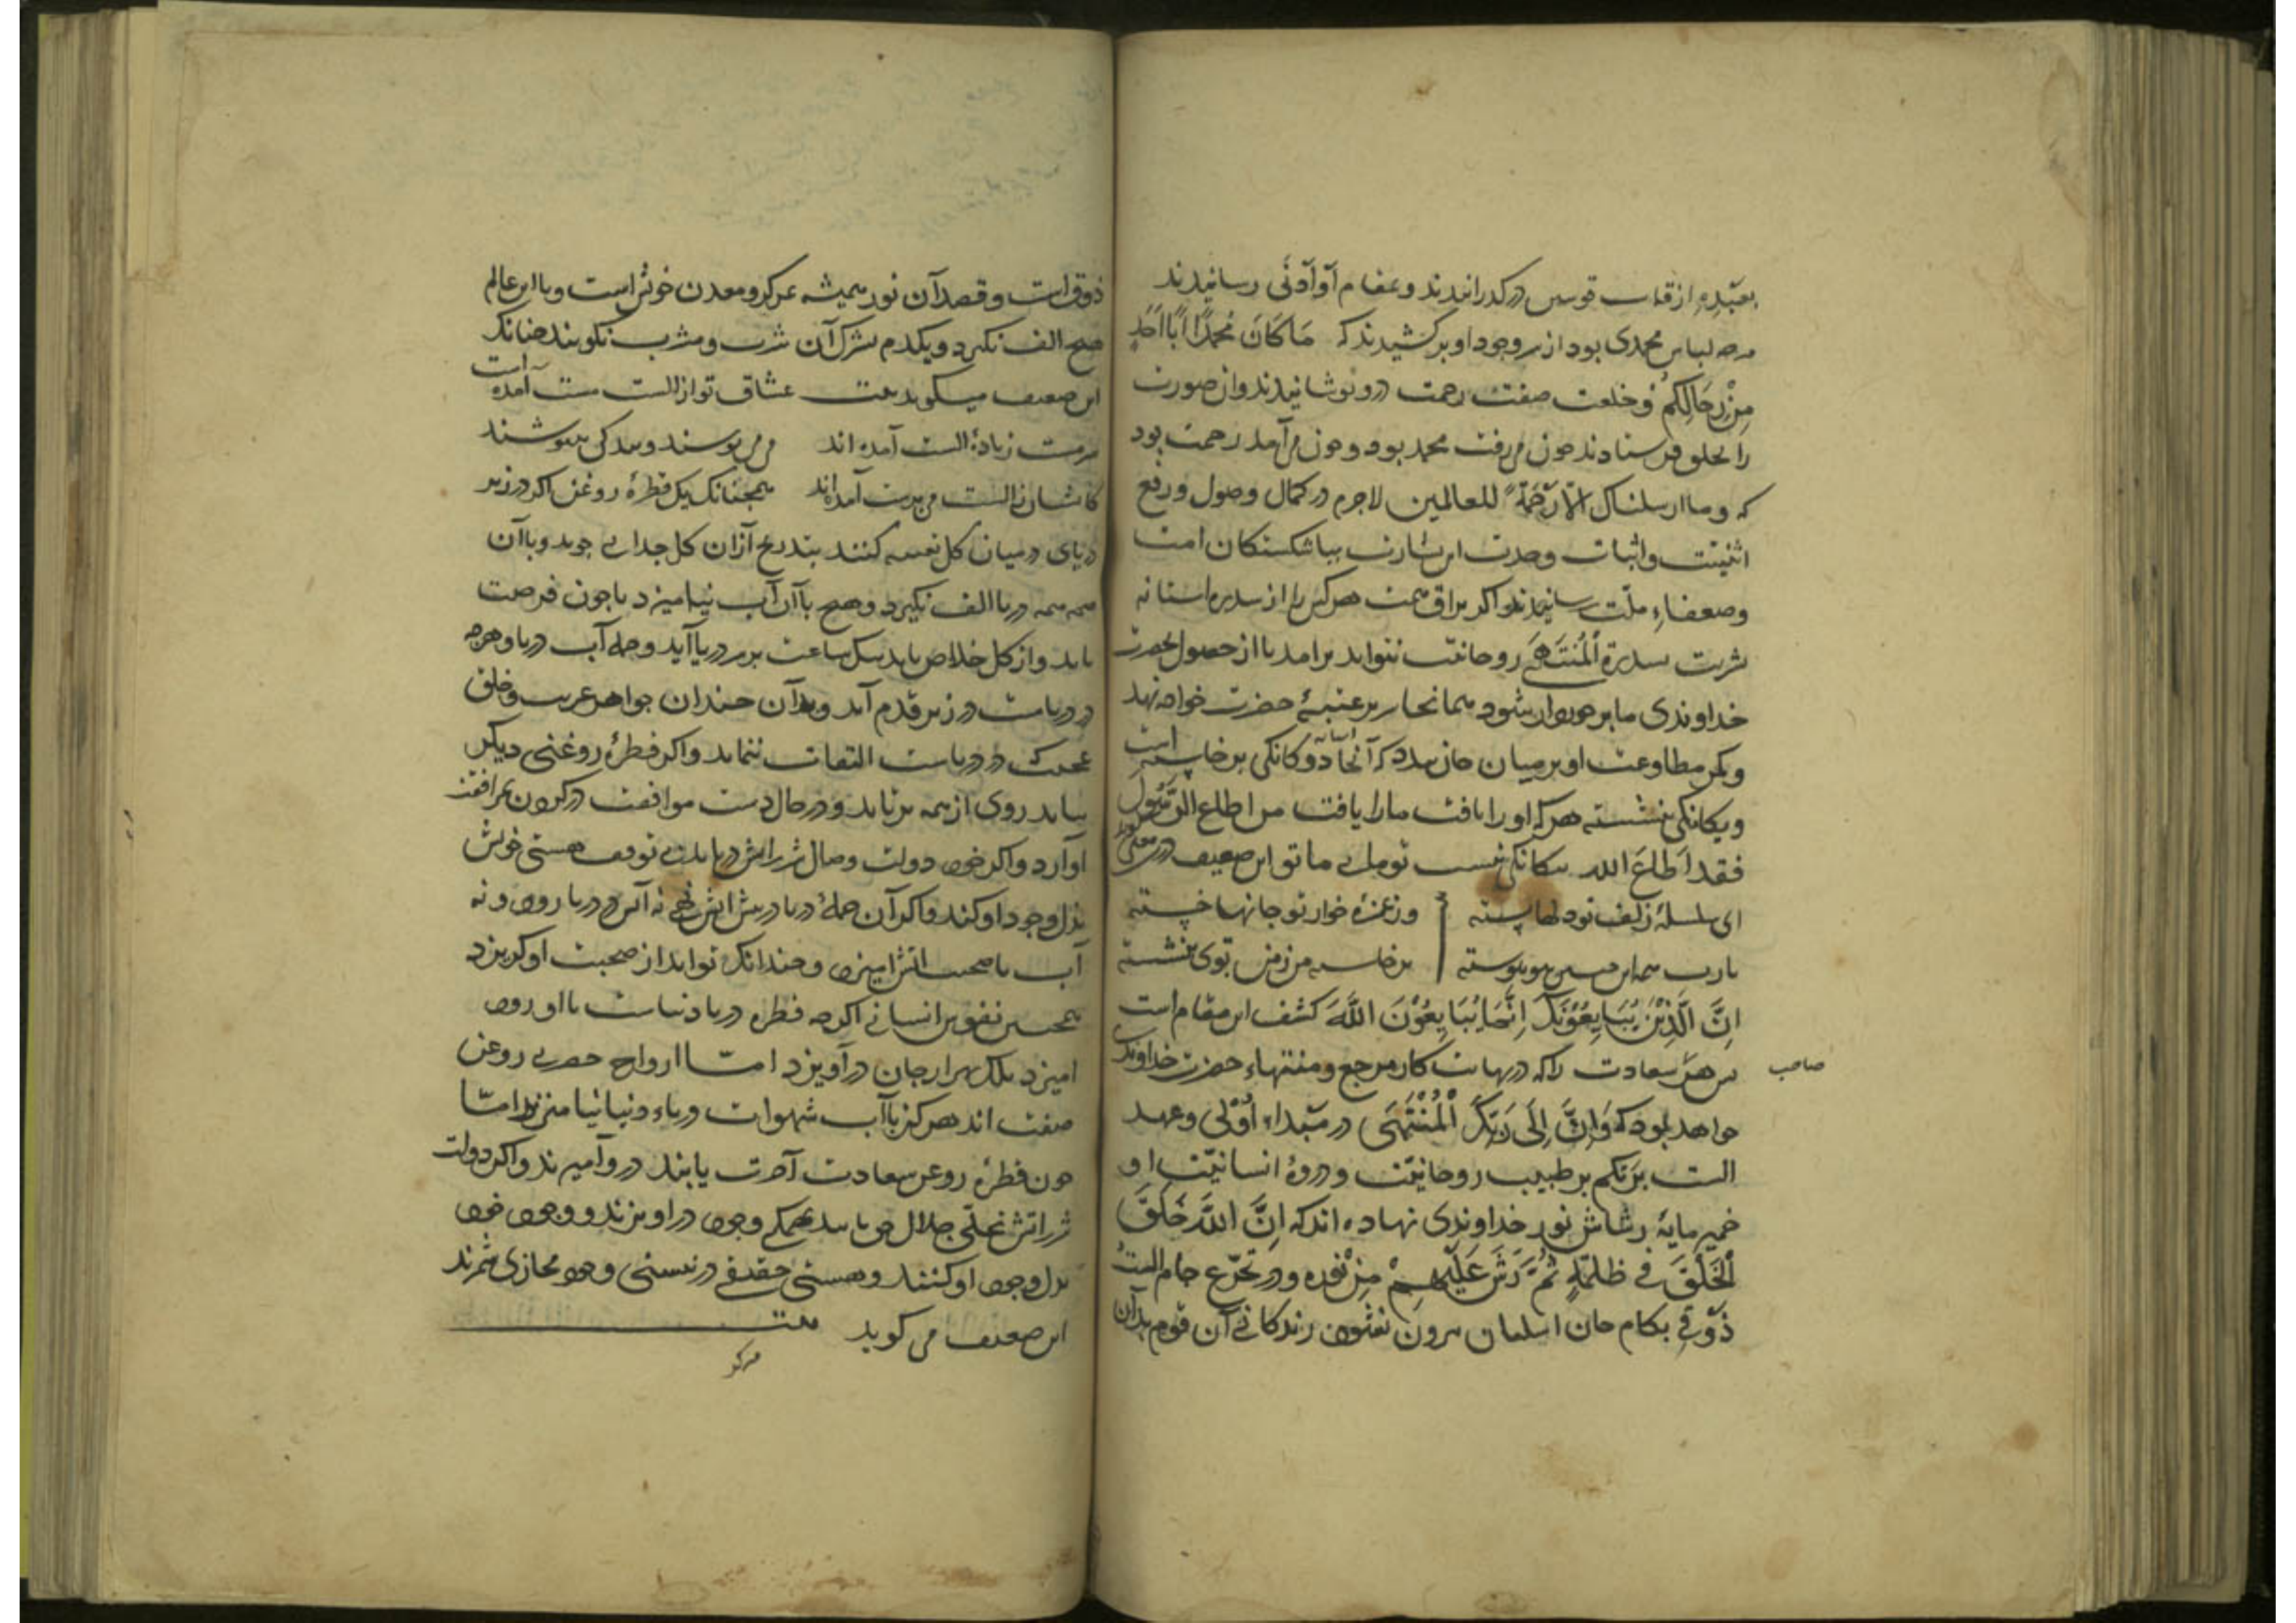 بعبده از قاب قوسین درگذرانیدند و بمقام أو أدنی رسانیدند
هرچه لباس محمدی بود از سر وجود او برکشیدند که مَا كَانَ مُحَمَّدٌ اَبَا اَحَدٍ
مِنْ رِجَالِكُمْ و خلعت صفت رحمت درو پوشانیدند و ان صورت
را بخلق فرستادند چون می رفت محمد بود و چون می آمد رحمت بود
که و ما ارسلناک الّا رَحْمَةً للعالمین لاجرم در کمال وصول و رفع
اثنیّت و اثبات وحدت این بشارت بباشکستکان امت
و ضعفاء ملّت رسانیدند و اکر براق همت هر کس را از سدره استانه
بشریت سدرة اَلْمُنْتَهَی روحانیت نتواند برامد تا از حصول بحضرت
خداوندی ما برخوردار شود همانجا سر بر عتبهٔ حضرت خواجه نهد
و کمر مطاوعت او بر میان جان بندد که آنجا دوکانکی برخاسته است
و یکانکی بنشسته هرکه او را یافت ما را یافت من اطاع الرَّسُولَ
فقد اَطاعَ الله یکانکی نیست تو ما یی ما تو این ضعیف در معنی
ای سلسلهٔ زلف تو دلها بسته وز غمزهٔ خوار تو جانها خسته
یارب همه این من بتو پیوسته برخاسته من ز من توی بنشسته
اِنَّ الَّذِیْنَ یُبَایِعُوْنَکَ اِنَّمَا یُبَایِعُوْنَ اللّٰهَ کشف این مقام است
پس هر سعادت را که در نهایت کار مرجع و منتهاء حضرت خداوندی
صاحب
خواهد بود که وَاِنَّ اِلَی رَبِّکَ اَلْمُنْتَهَی در مبتداء اُوْلَی و عهد
الست بربّکم بر طبیب روحانیّت و دروهٔ انسانیّت او
خمیر مایهٔ رشاش نور خداوندی نهاده اند که اِنَّ اللّٰهَ خَلَقَ
اَلْخَلْقَ فی ظلمةٍ ثُمَّ رَشَّ عَلَیْهِمْ مِنْ نُوره و در تجرّع جام الست
ذوقی بکام جان ایشان بیرون نشود زندکانی آن قوم بدان
ذوق است و قصد آن نور همیشه بمرکز و معدن خویش است و با این عالم
هیچ الف نکیرد و یکدم بترک آن شرب و مشرب نکویند چنانک
این ضعیف میکوید بیت عشاق تو از الست مست آمده است
سرمست ز بادهٔ الست آمده اند می می نوشند و پند کی می نیوشند
کایشان ز الست می پرست آمده اند همچنانک یک قطرهٔ روغن اکر در زیر
دریای در میان کل تعبیه کنند بتدریج از آن کل جدایی جوید و با آن
همه همه دریا الف نکیرد و هیچ با آن آب نیامیزد تا چون فرصت
یابد و از کل خلاص یابد بیک ساعت بر سر دریا آید و جمله آب دریا و هرچه
در دریاست در زیر قدم آید و بدان چندان جواهر غریب و خلق
عجیب که در دریاست التفات ننماید و اکر قطرهٔ روغنی دیکر
بیابد روی از همه برتابد و در حال دست موافقت در کردن مرافقت
او آرد و اکر خود دولت وصال شرر اتش دریابد بی توقف هستی خویش
بذل وجود او کند و اکر آن جملهٔ دریا در پیش اتش نهی نه آتش در دریا رود و نه
آب با صحبت اتش امیزد و چندانک تواند از صحبت او کریزد
همچنین نفوس انسانی اکرچه قطره دریا دنیاست با او رود
امیزد بلک بهزار جان درآویزد امّا ارواح حضرتی روغن
صفت اند هرکز با آب شهوات دریاء دنیا نیامیزند امّا
چون قطرهٔ روغن سعادت آخرت یابند درو آمیزند و اکر دولت
شرر اتش تجلّی جلال حق یابند بهمکی وجود در اویزند و وجود خود
بدل وجود او کنند و هستی حقیقی در نیستی وجود مجازی شمرند
این ضعیف می کوید بیت
هرکز